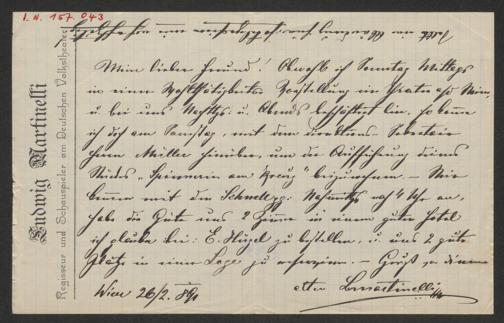 I. N. 157.043
Ludwig Martinelli
Regisseur und Schauspieler am Deutschen Volkstheater
Mein lieber Freund! Obwohl ich Sonntag Mittags
in einer Wohltätigkeits Vorstellung im Theater a/d Wien
u. bei uns Nachtgs. u. Abends beschäftigt bin, so komme
ich doch am Samstag, mit dem Direktions-Sekretair
Herrn Müller hinüber, um der Aufführung deines
Stückes "Spinnerin am Kreuz" beizuwohnen. – Wir
kommen mit dem Schnellzg. Nachmittgs nach 4 Uhr an,
habe die Güte uns 2 Zimmer in einem guten Hotel
ich glaube bei: E. Hügel zu bestellen, u. uns 2 gute
Plätze in einer Loge zu reserviren. – Gruß von deinem
Wien 26/2. 891
alten LMartinelli